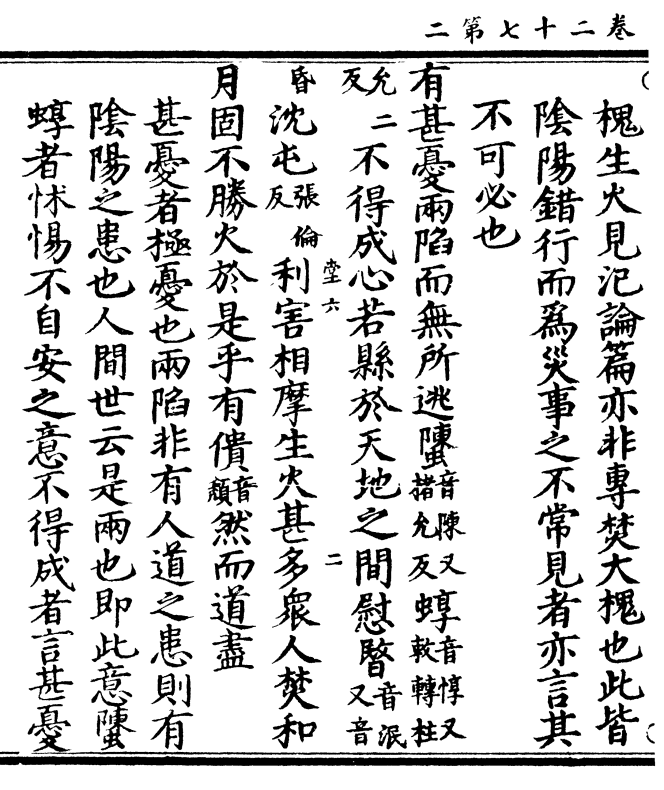 卷二十七第二
槐生火見汜論篇亦非專焚大槐也此皆
陰陽錯行而為災事之不常見者亦言其
不可必也
有甚憂兩陷而無所逃螴音陳又楮允反蜳音惇又敕轉柱
允反二不得成心若縣於天地之間慰暋音泯又音
昏沈屯張倫反利害相摩生火甚多衆人焚和
月固不勝火於是乎有僓音頹然而道盡
甚憂者極憂也兩陷非有人道之患則有
陰陽之患也人間世云是兩也即此意螴
蜳者怵惕不自安之意不得成者言甚憂
堂六
二